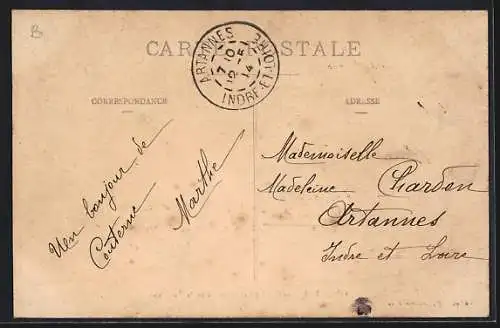 B
CARTE POSTALE
ARTANNES
INDRE-ET-LOIRE
CORRESPONDANCE
ADRESSE
Un bonjour de
Couterne
Marthe
Mademoiselle
Madeleine Chardon
Artannes
Indre et Loire